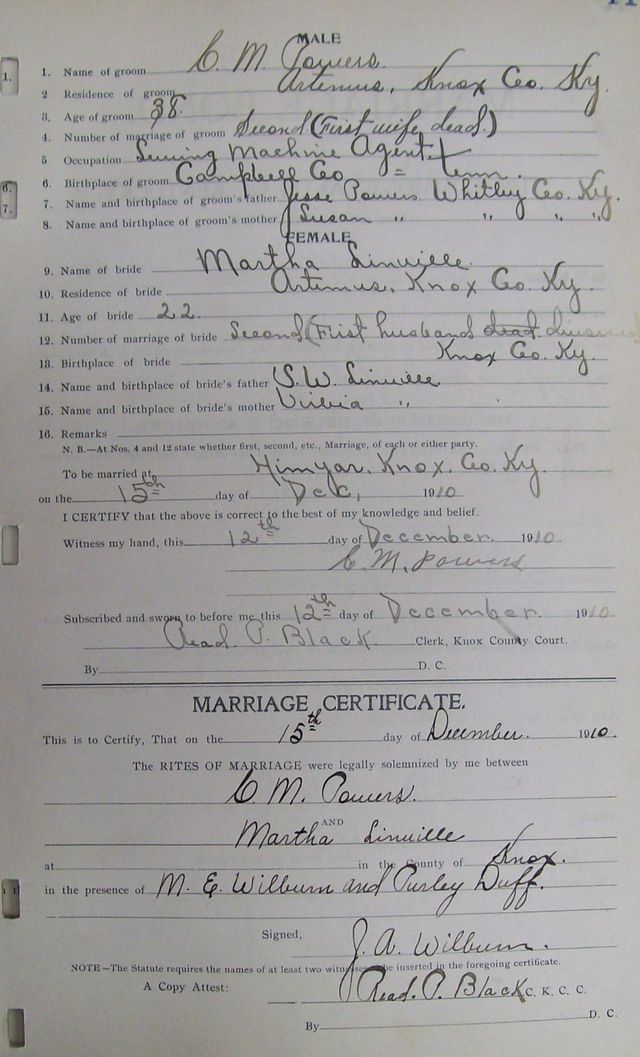 MALE
1. Name of groom C. M. Powers.
2 Residence of groom Artemus, Knox Co. Ky.
3. Age of groom 38.
4. Number of marriage of groom Second (First wife dead.)
5 Occupation Sewing Machine Agent.
6. Birthplace of groom Campbell Co = Tenn.
7. Name and birthplace of groom's father Jesse Powers Whitley Co. Ky.
8. Name and birthplace of groom's mother Susan " " " "
FEMALE
9. Name of bride Martha Linville.
10. Residence of bride Artemus, Knox Co. Ky.
11. Age of bride 22.
12. Number of marriage of bride Second (First husband dead
13. Birthplace of bride Knox Co. Ky.
14. Name and birthplace of bride's father S. W. Linville.
15. Name and birthplace of bride's mother "
16. Remarks
N. B.—At Nos. 4 and 12 state whether first, second, etc., Marriage, of each or either party.
To be married at Himyar, Knox. Co. Ky.
on the 15th day of Dec, 1910
I CERTIFY that the above is correct to the best of my knowledge and belief.
Witness my hand, this 12th day of December. 1910
C. M. Powers
Subscribed and sworn to before me this 12th day of December. 1910
Read. P. Black Clerk, Knox County Court.
By D. C.
MARRIAGE CERTIFICATE.
This is to Certify, That on the 15th day of December. 1910.
The RITES OF MARRIAGE were legally solemnized by me between
C. M. Powers.
AND
Martha Linville
at in the County of Knox.
in the presence of M. E. Wilburn and Purley Duff.
Signed,
J. A. Wilburn.
NOTE—The Statute requires the names of at least two witnesses be inserted in the foregoing certificate.
A Copy Attest: Read. P. Black C. K. C. C.
By D. C.